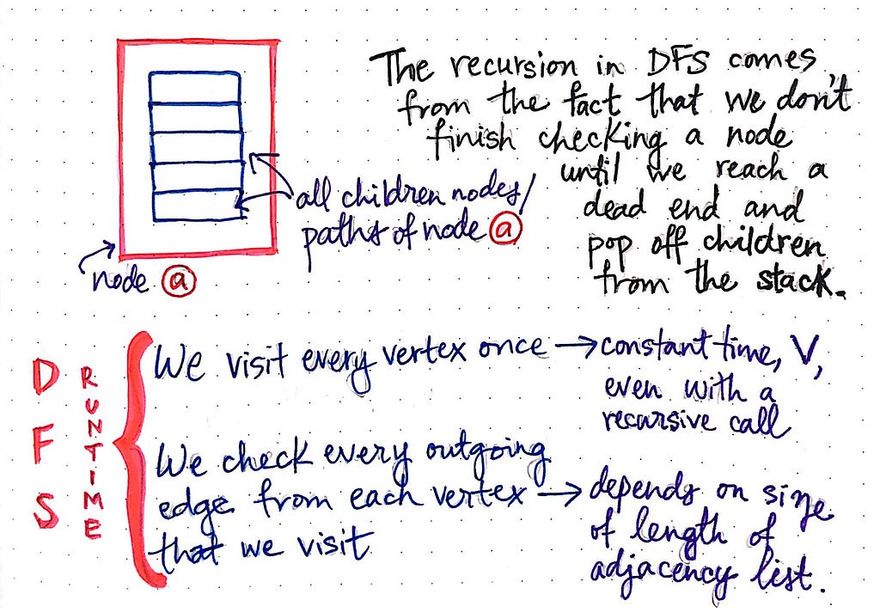 The recursion in DFS comes
from the fact that we don't
finish checking a node
until we reach a
dead end and
pop off children
from the stack.
all children nodes/
paths of node a
node a
DFS
RUNTIME
We visit every vertex once → constant time, V,
even with a
recursive call
We check every outgoing
edge from each vertex → depends on size
that we visit
of length of
adjacency list.